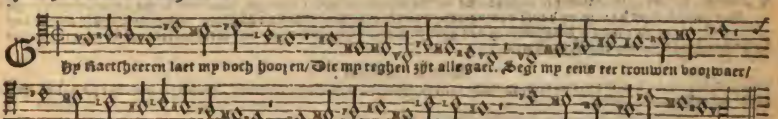 GHy Raetsheeren laet my doch hooren/Die my teghen zijt alle gaer. Segt my eens ter trouwen voorwaer/